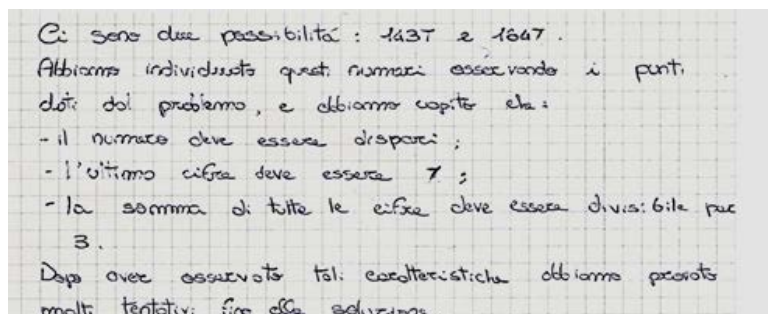 Ci sono due possibilità: 1437 e 1647.
Abbiamo individuato questi numeri osservando i punti
dati dal problema, e abbiamo capito che:
- il numero deve essere dispari;
- l'ultima cifra deve essere 7;
- la somma di tutte le cifre deve essere divisibile per
3.
Dopo aver osservato tali caratteristiche abbiamo provato
molti tentativi fino alla soluzione